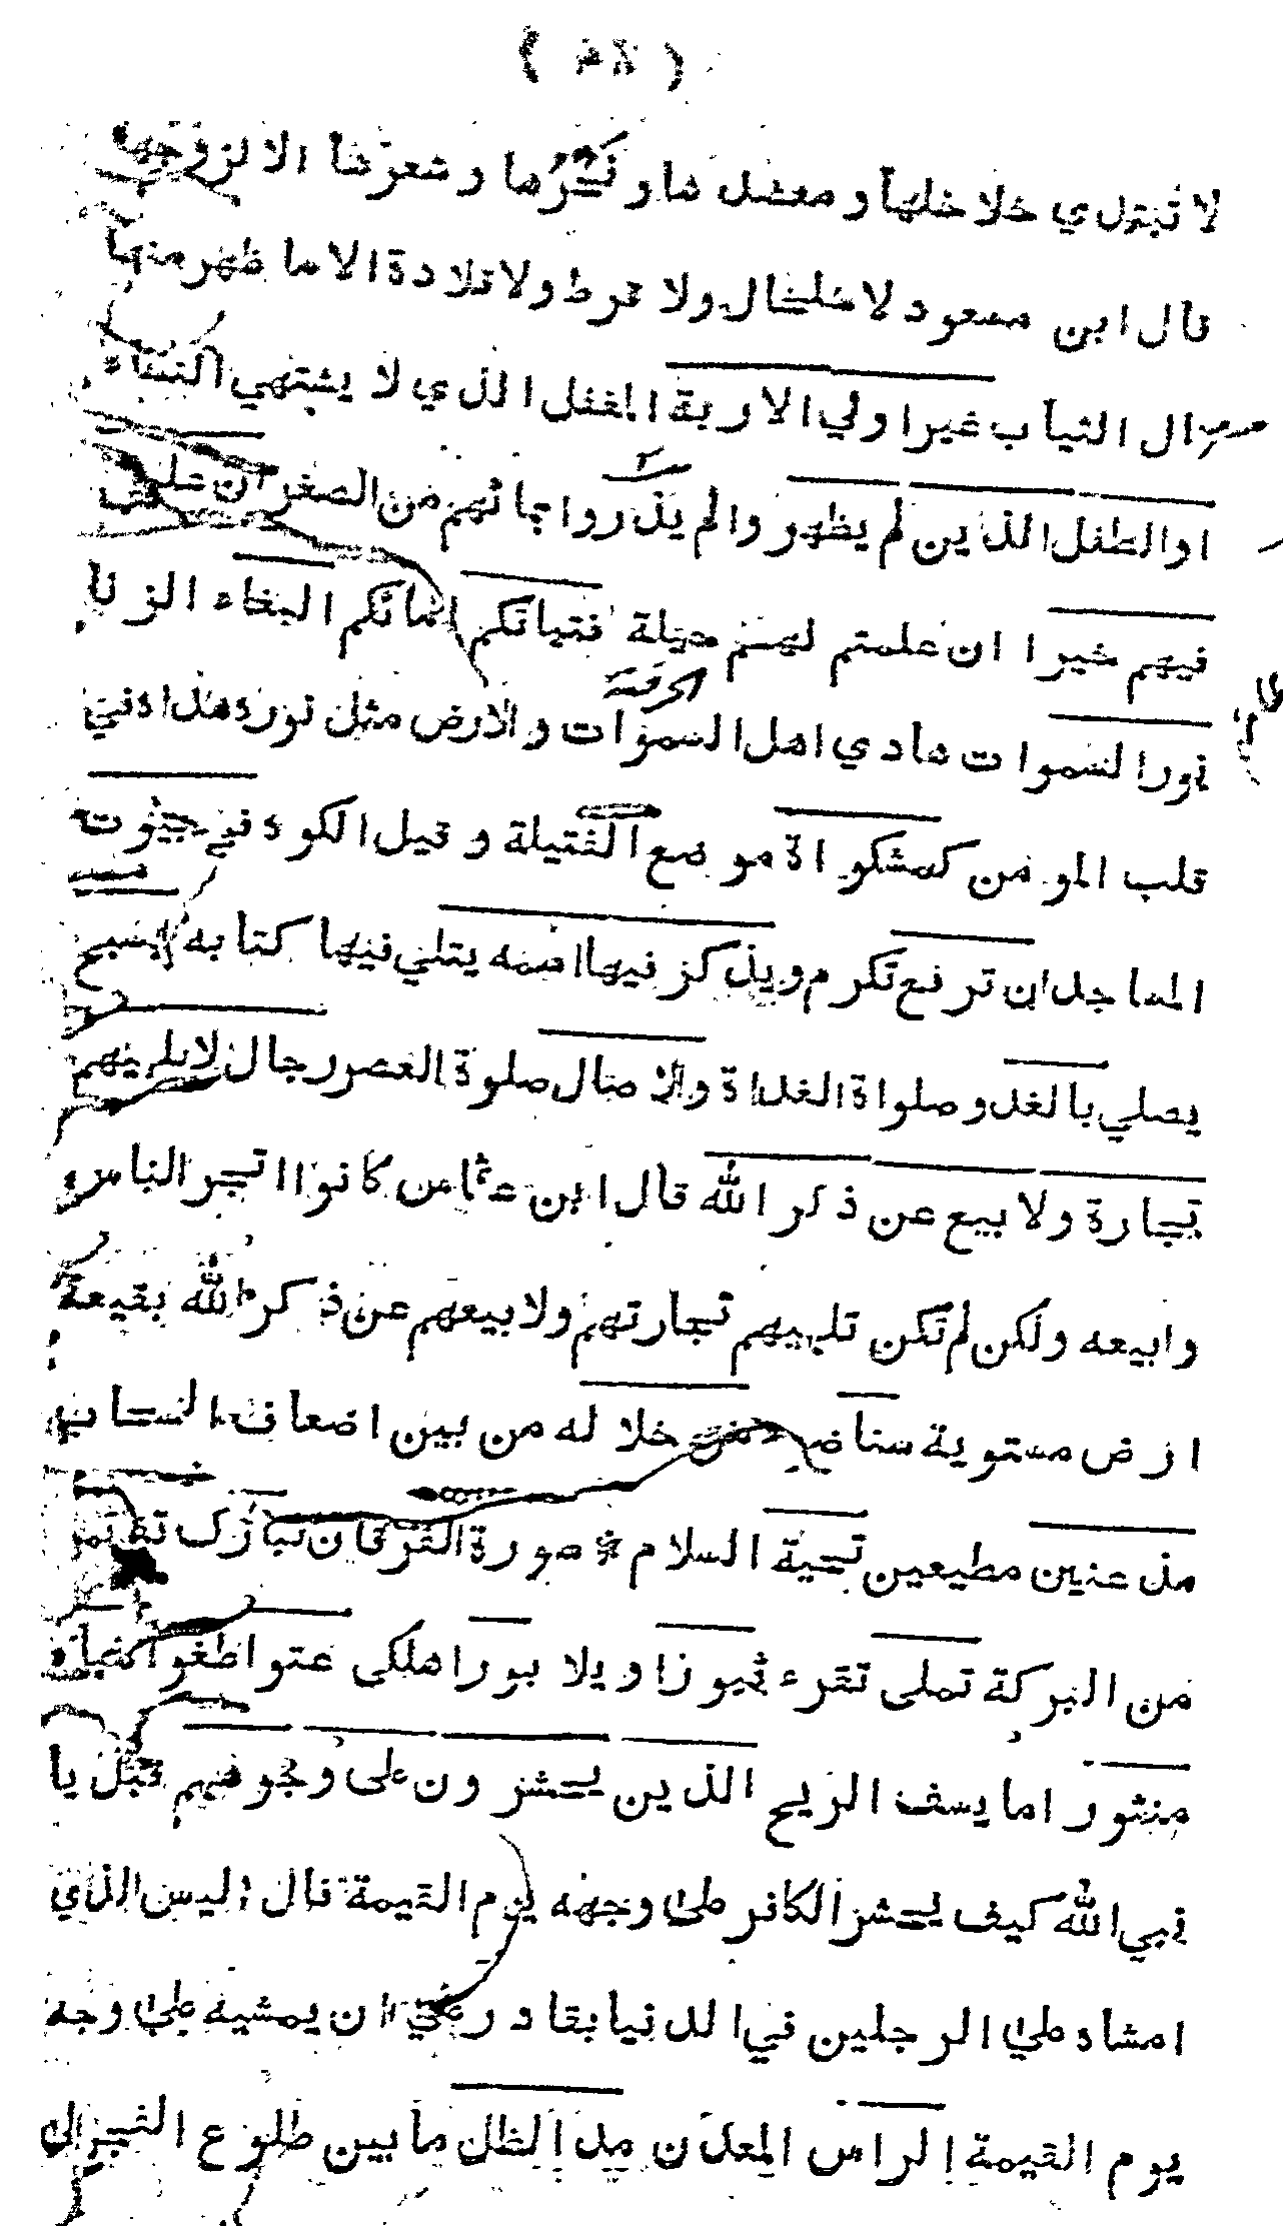 لا تبتدي خلاخلها و معضدها و نحرها و شعرها الا لزوجها
قال ابن مسعود لا خلخال ولا قرط ولا قلادة الا ما ظهر منها
قال الثياب غير اولي الاربة المغفل الذي لا يشتهي النساء
او الطفل الذين لم يظهر والم يدروا بهائهم من الصغر ان علمتم
فيهم خيرا ان علمتم لهم حيلة فتياتكم امائكم البغاء الزنا
نور السموات هادي اهل السموات والارض مثل نوره هداه في
قلب المومن كمشكواة موضع الفتيلة و قيل الكوة في بيوت
المساجد ان ترفع تكرم ويذكر فيها اسمه يتلى فيها كتابه يسبح
يصلي بالغدو صلواة الغداة والاصال صلوة العصر رجال لا تلهيهم
تجارة ولا بيع عن ذكر الله قال ابن عباس كانوا اتجر الناس
وابيعه ولكن لم تكن تلهيهم تجارتهم ولا بيعهم عن ذكر الله بقيعة
ارض مستوية سنا ضوء من خلاله من بين اضعاف السحاب
مذعنين مطيعين تحية السلام * سورة الفرقان تبارك تفتعل
من البركة تملى تقرء ثبورا ويلا بورا هلكى عتوا طغوا هباء
منثورا ما يسف الريح الذين يحشرون على وجوههم قيل يا
نبي الله كيف يحشر الكافر على وجهه يوم القيمة قال اليس الذي
امشاه على الرجلين في الدنيا بقادر على ان يمشيه على وجهه
يوم القيمة الراس المعدن مد الظل ما بين طلوع الفجر الى